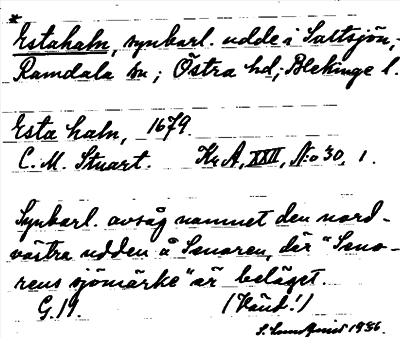 *
Estahaln, synbarl. udde i Saltsjön,
Ramdala sn; Östra hd; Blekinge l.
Esta haln, 1679.
C. M. Stuart. Kr A, XXII, No 30, 1.
Synbarl. avsåg namnet den nord-
västra udden å Senoren, där "Seno-
rens sjömärke" är beläget.
G.19. (Vänd!)
S. 1936